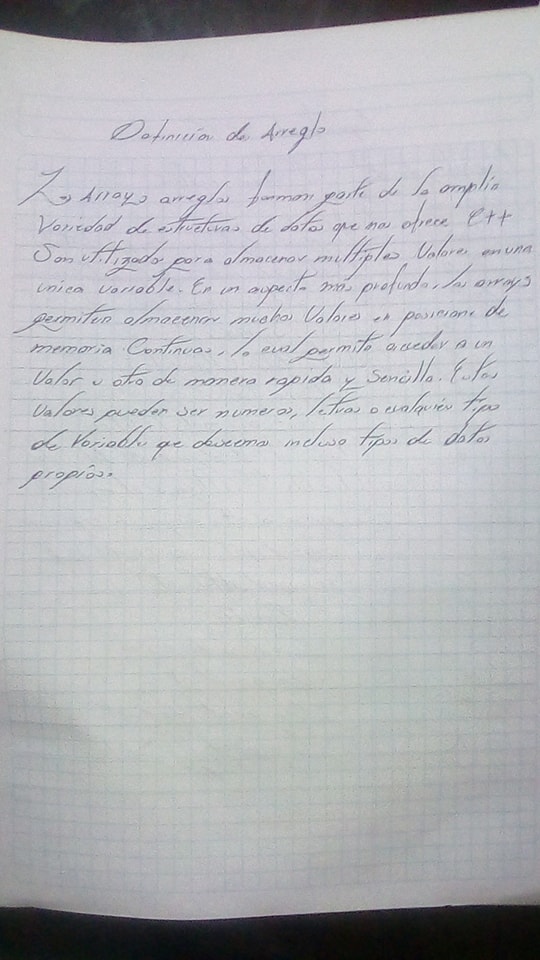 Definición de Arreglo
Los Arrays arreglos forman parte de la amplia
Variedad de estructuras de datos que nos ofrece C++
Son utilizados para almacenar múltiples Valores en una
única variable. En un aspecto más profundo, los arrays
permiten almacenar muchos Valores en posiciones de
memoria Continuas, lo cual permite acceder a un
Valor u otro de manera rapida y Sencilla. Estos
Valores pueden ser numeros, letras o cualquier tipo
de Variable que deseemos incluso tipos de datos
propios.